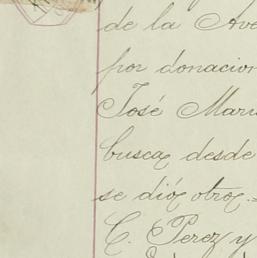 de la Ave
por donacion
José Maria
busca desde
se dió otro
C. Perez y